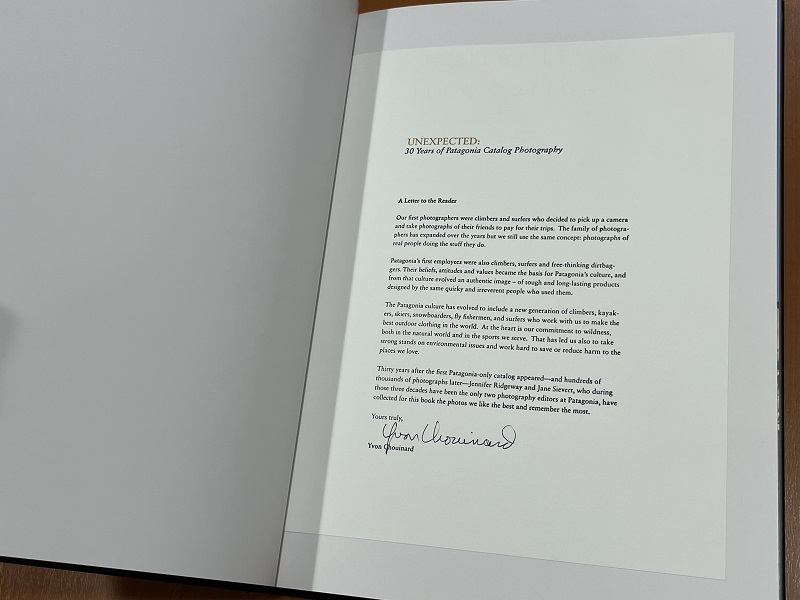 UNEXPECTED:
30 Years of Patagonia Catalog Photography
A Letter to the Reader
Our first photographers were climbers and surfers who decided to pick up a camera
and take photographs of their friends to pay for their trips. The family of photogra-
phers has expanded over the years but we still use the same concept: photographs of
real people doing the stuff they do.
Patagonia's first employees were also climbers, surfers and free-thinking dirtbag-
gers. Their beliefs, attitudes and values became the basis for Patagonia's culture, and
from that culture evolved an authentic image – of tough and long-lasting products
designed by the same quirky and irreverent people who used them.
The Patagonia culture has evolved to include a new generation of climbers, kayak-
ers, skiers, snowboarders, fly fishermen, and surfers who work with us to make the
best outdoor clothing in the world. At the heart is our commitment to wildness,
both in the natural world and in the sports we serve. That has led us also to take
strong stands on environmental issues and work hard to save or reduce harm to the
places we love.
Thirty years after the first Patagonia-only catalog appeared—and hundreds of
thousands of photographs later—Jennifer Ridgeway and Jane Sievert, who during
those three decades have been the only two photography editors at Patagonia, have
collected for this book the photos we like the best and remember the most.
Yours truly,
Yvon Chouinard
Yvon Chouinard